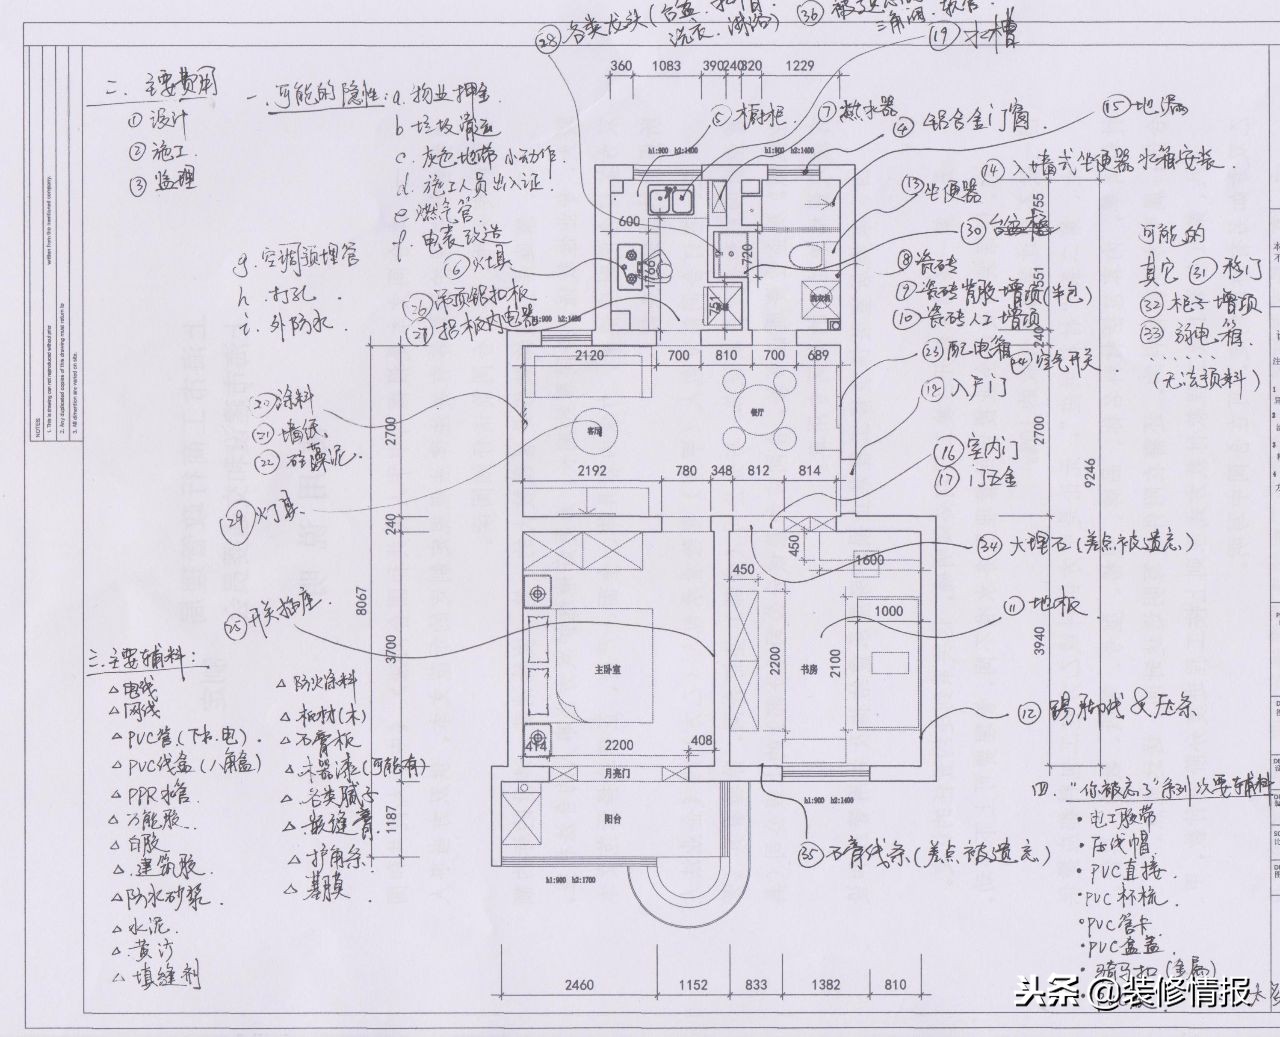 28 各类龙头(台盆
洗衣、淋浴)
36
三角阀、软管
19 水槽
360 1083 390 240 320 1229
二、主要费用
① 设计
② 施工
③ 监理
一、可能的隐性:
a. 物业押金
b 垃圾清运
c. 灰色地带小动作.
d. 施工人员出入证.
e 燃气管.
f. 电表改造
g. 空调预埋管
h. 打孔
i. 外防水
⑤ 橱柜
⑦ 热水器
④ 铝合金门窗
15 地漏
14 入墙式坐便器水箱安装
13 坐便器
30 台盆柜
⑧ 瓷砖
⑨ 瓷砖背胶增项(半包)
10 瓷砖人工增项
23 配电箱
24 空气开关
18 入户门
可能的
其它 31 移门
32 柜子增项
33 弱电箱
......
(无法预料)
⑥ 灶具
26 吊顶铝扣板
27 铝板内电器
h1:900 h2:1400
h1:900 h2:1400
h1:900 h2:1400
600
766
720
751
洗衣机
755
551
240
2120 700 810 700 689
20 涂料
21 墙纸
22 硅藻泥
2700
客厅
餐厅
2700
9246
2192 780 348 812 814
16 室内门
17 门五金
29 灯具
240
450
1600
34 大理石(差点被遗忘)
450
8067
25 开关插座
1000
11 地板
3700
2200
2100
3940
主卧室
书房
12 踢脚线&压条
414 2200 408
月亮门
h1:900 h2:1400
1187
阳台
35 石膏线条(差点被遗忘)
h1:900 h2:1700
三.主要辅料:
△ 电线
△ 网线
△ PVC管(下水.电)
△ PVC线盒(八角盒)
△ PPR水管
△ 万能胶
△ 白胶
△ 建筑胶
△ 防水砂浆
△ 水泥
△ 黄沙
△ 填缝剂
△ 防火涂料
△ 板材(木)
△ 石膏板
△ 木器漆(可能有)
△ 各类腻子
△ 嵌缝膏
△ 护角条
△ 基膜
四. “你被忘了”系列次要辅料
• 电工胶带
• 压线帽
• PVC直接
• PVC杯梳
• PVC管卡
• PVC盒盖
• 骑马扣(金属)
2460 1152 833 1382 810
NOTES:
1. This is drawing can not reproduced without prior
written from the mentioned company.
2. Any duplicated copies of this drawing must return to
3. All dimention are reated on site.
头条 @装修情报